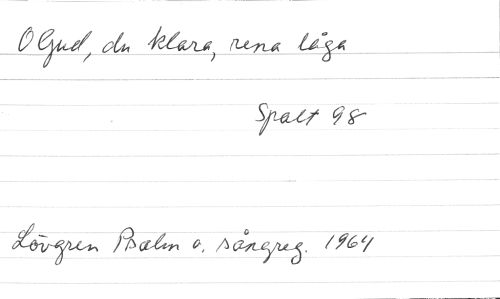 O Gud, du klara, rena låga
Spalt 98
Lövgren Psalm o. sångreg. 1964